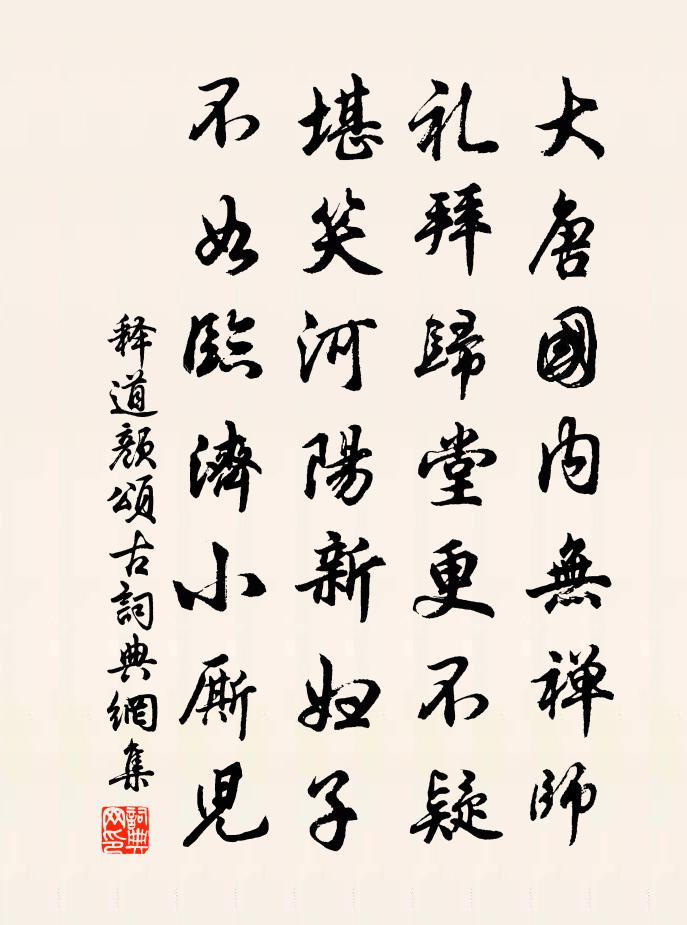 大唐國内無禅師
礼拜歸堂更不疑
堪笑河陽新婦子
不如臨濟小厮児
释道颜頌古詞典網集
詞典網印